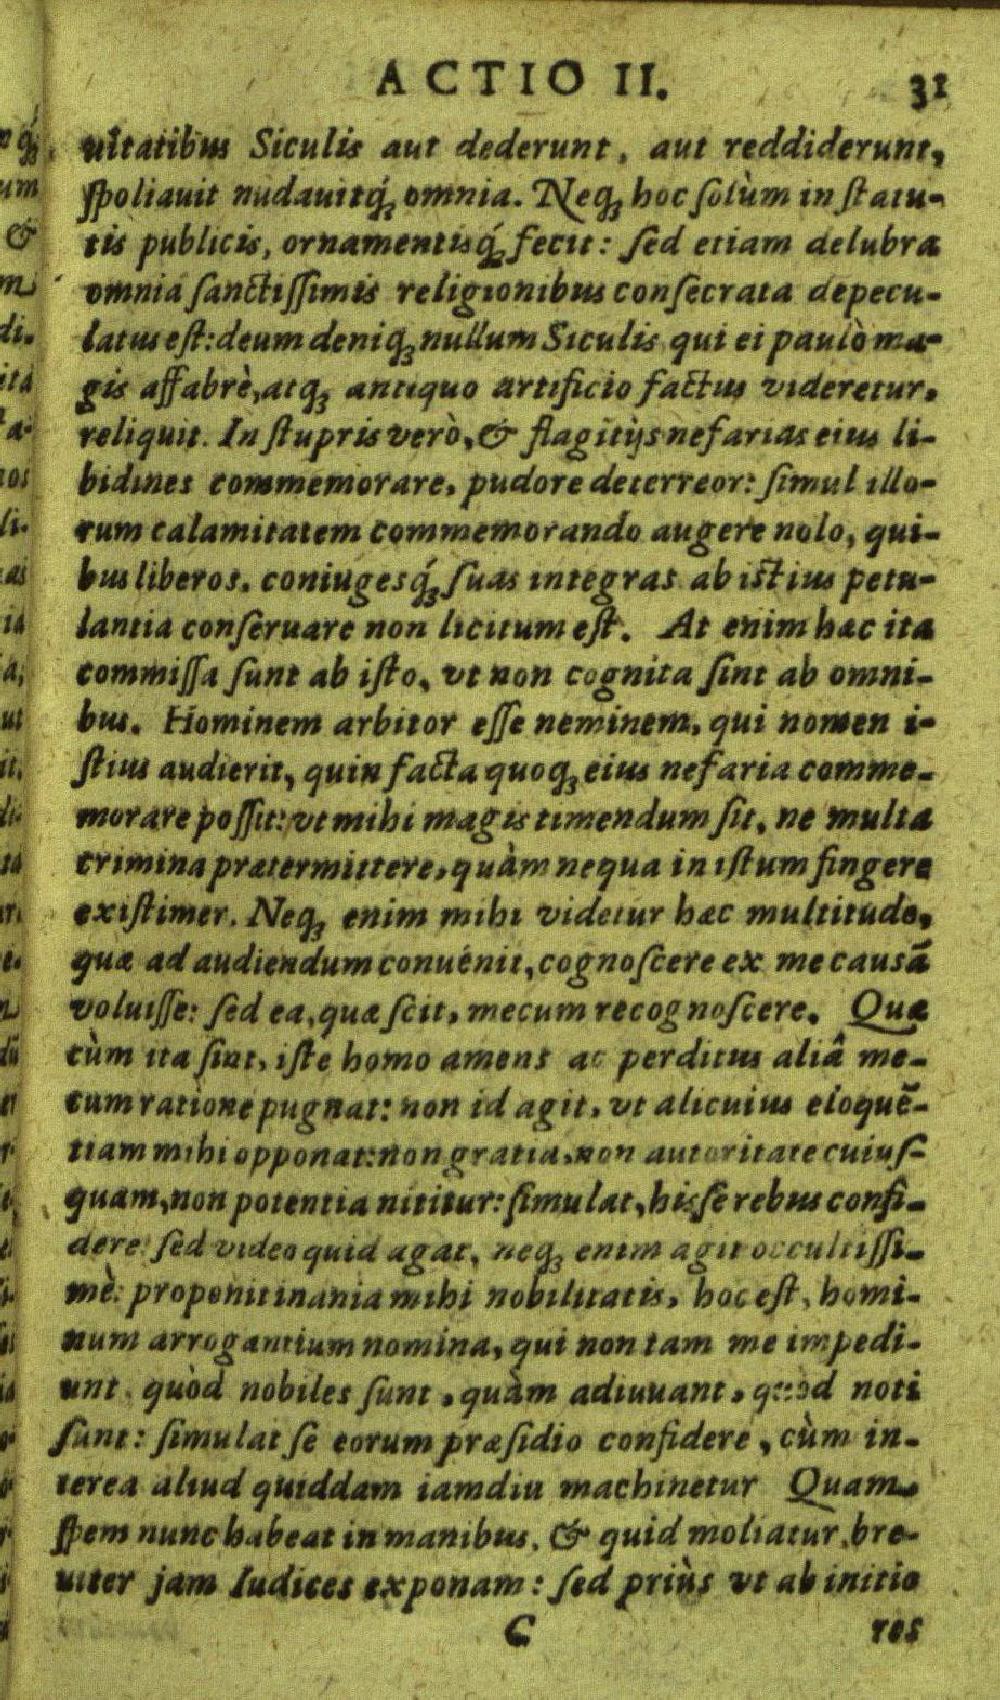 ACTIO II. 31
uitatibus Siculis aut dederunt, aut reddiderunt,
ſpoliauit nudauitq́ꝫ omnia. Neqꝫ hoc ſolùm in ſtatu-
tis publicis, ornamentisq́ꝫ fecit: ſed etiam delubra
omnia ſanctiſſimis religionibus conſecrata depecu-
latus eſt: deum deniqꝫ nullum Siculis qui ei paulò ma-
gis affabrè, atqꝫ antiquo artificio factus videretur,
reliquit. In ſtupris verò, & flagitijs nefarias eius li-
bidines commemorare, pudore deterreor: ſimul illo-
rum calamitatem commemorando augere nolo, qui-
bus liberos, coniugesq́ꝫ ſuas integras ab iſtius petu-
lantia conſeruare non licitum eſt. At enim hæc ita
commiſſa ſunt ab iſto, vt non cognita ſint ab omni-
bus. Hominem arbitor eſſe neminem, qui nomen i-
ſtius audierit, quin facta quoqꝫ eius nefaria comme-
morare poſſit: vt mihi magis timendum ſit, ne multa
crimina prætermittere, quàm nequa in iſtum fingere
exiſtimer. Neqꝫ enim mihi videtur hæc multitudo,
quæ ad audiendum conuénit, cognoſcere ex me causā
voluiſſe: ſed ea, quæ ſcit, mecum recognoſcere. Quæ
cùm ita ſint, iſte homo amens ac perditus aliâ me-
cum ratione pugnat: non id agit, vt alicuius eloquē-
tiam mihi opponat: non gratia, non autoritate cuiuſ-
quam, non potentia nititur: ſimulat, his ſe rebus confi-
dere: ſed video quid agat, neqꝫ enim agit occultiſſi-
mè: proponit inania mihi nobilitatis, hoc eſt, homi-
num arrogantium nomina, qui non tam me impedi-
unt, quòd nobiles ſunt, quàm adiuuant, quòd noti
ſunt: ſimulat ſe eorum præſidio confidere, cùm in-
terea aliud quiddam iamdiu machinetur Quam
ſpem nunc habeat in manibus, & quid moliatur, bre-
uiter jam Iudices exponam: ſed priùs vt ab initio
C res